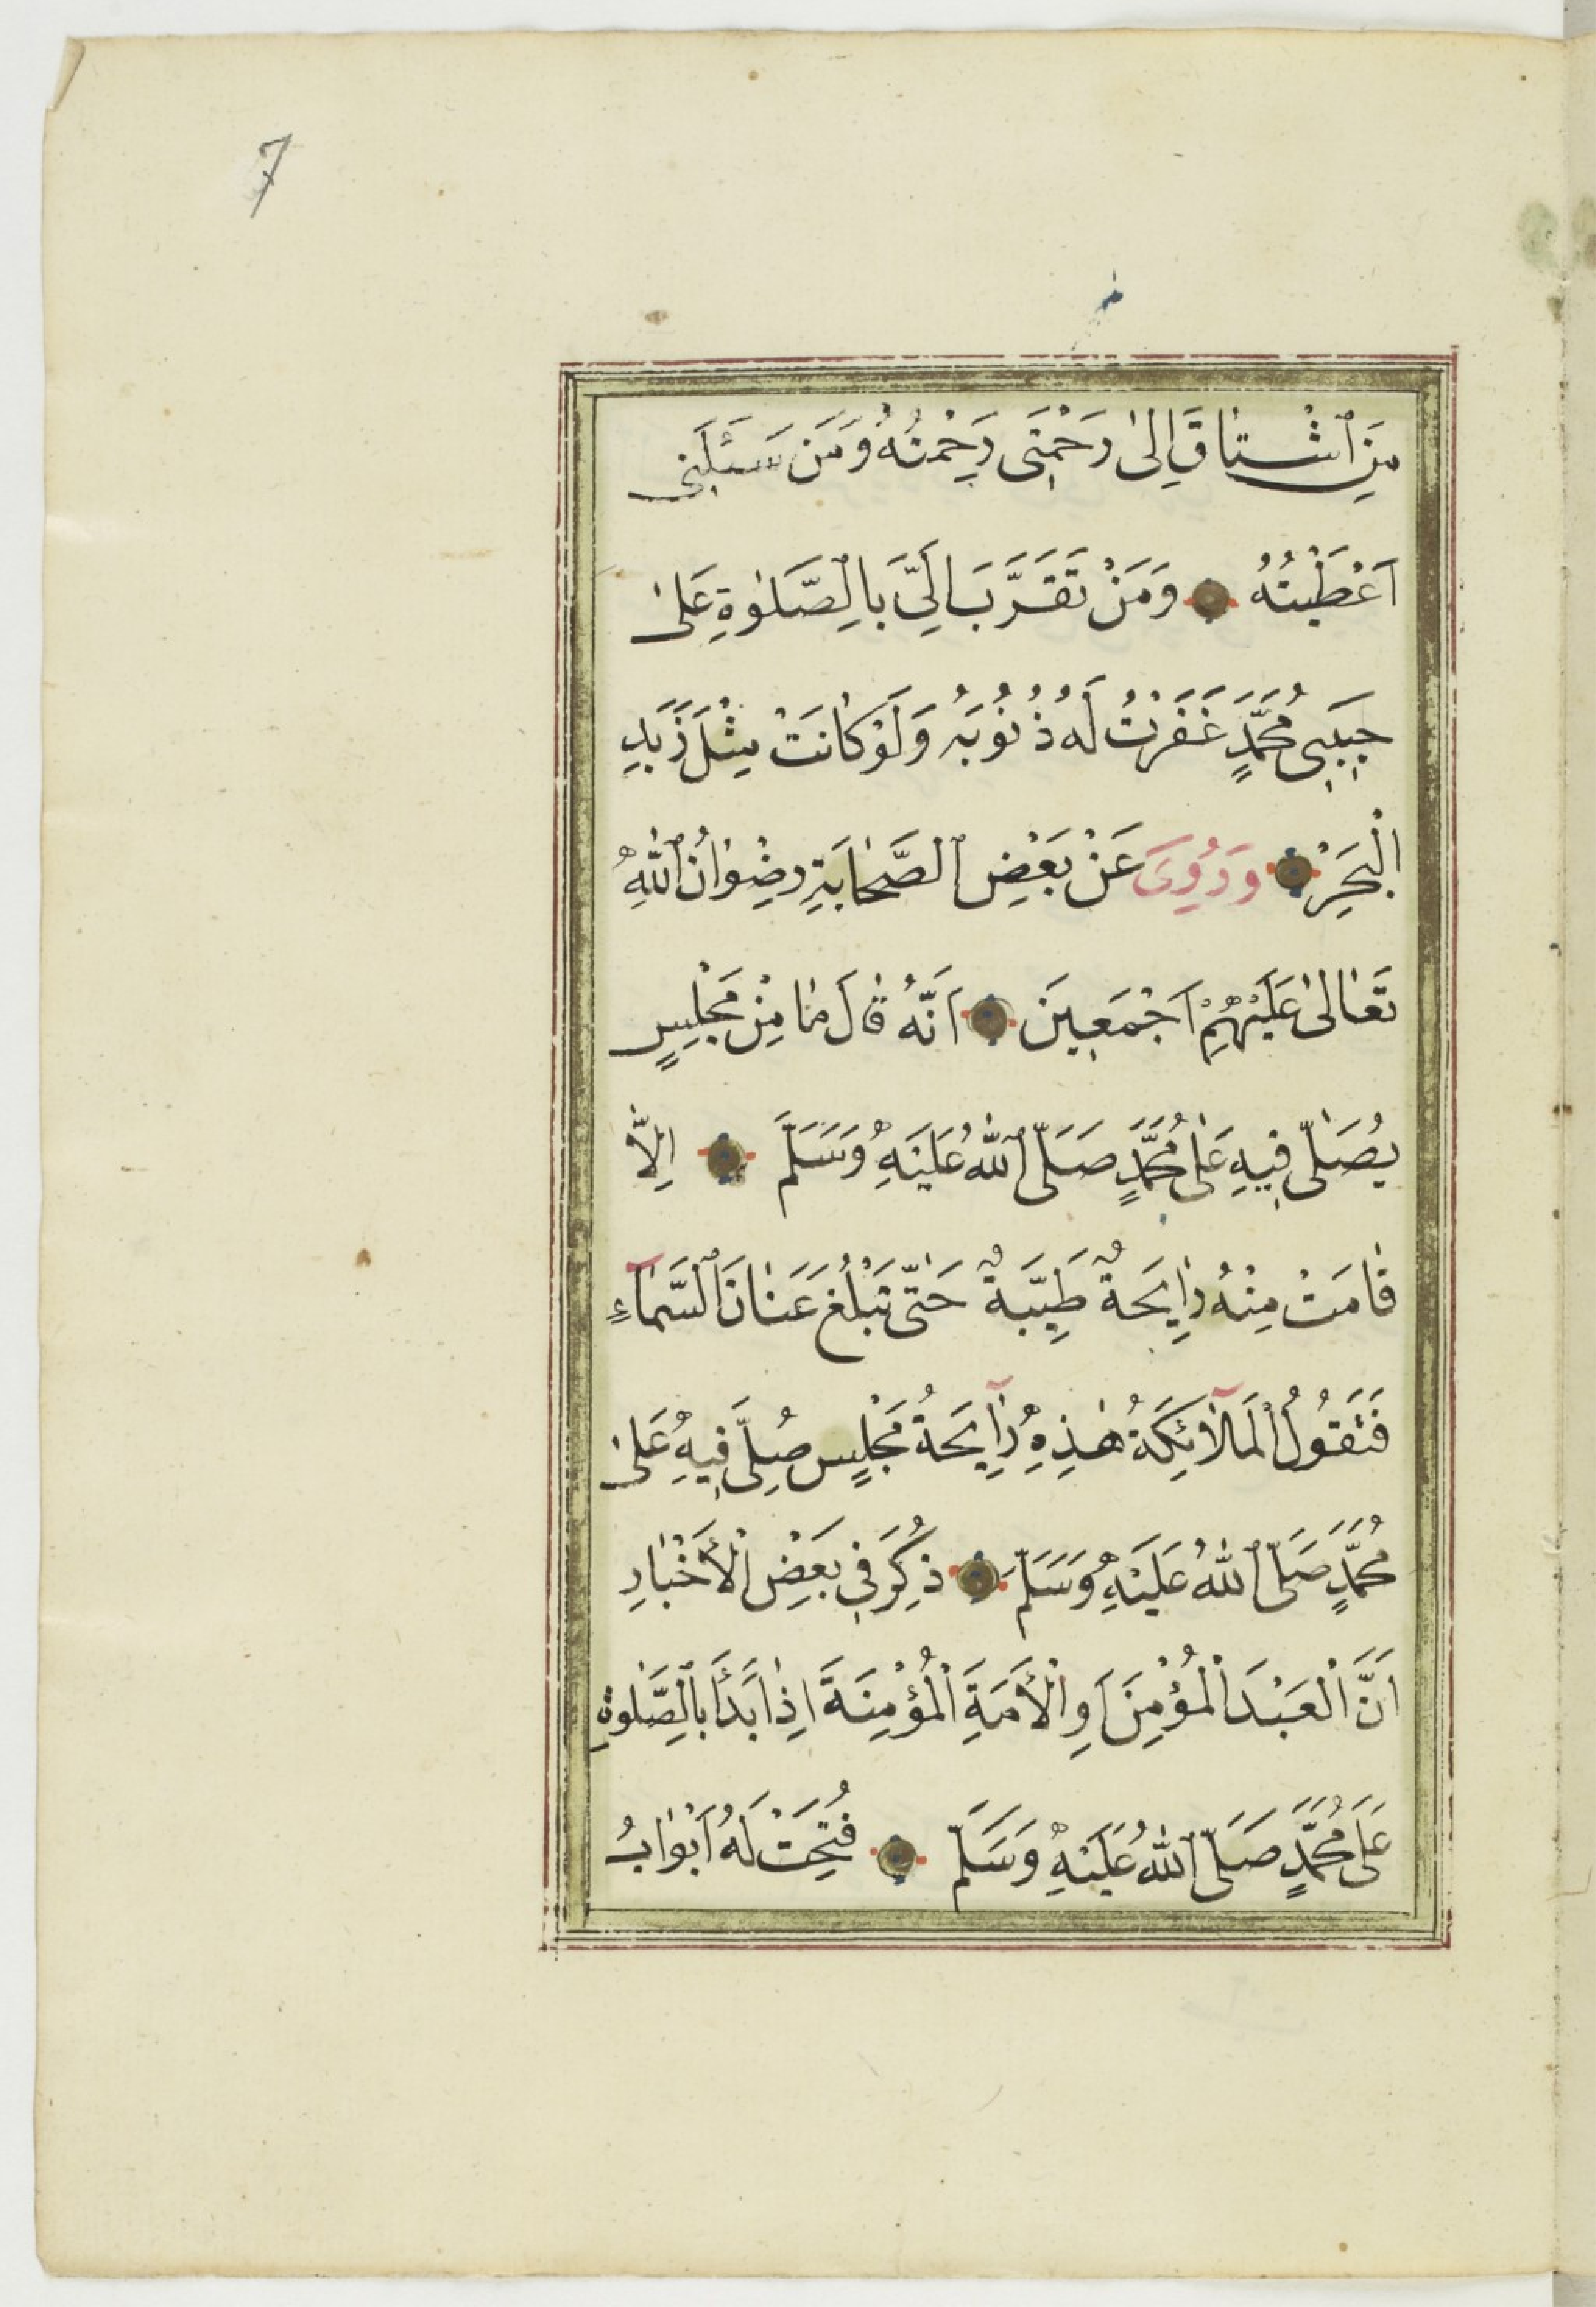 7
مَنِ ٱشْتَاقَ اِلٰى رَحْمَتٖى رَحِمْتُهُ وَمَنْ سَئَلَنٖى
اَعْطَيْتُهُ وَمَنْ تَقَرَّبَ اِلَىَّ بِالصَّلٰوةِ عَلٰى
حَبٖيبٖى مُحَمَّدٍ غَفَرْتُ لَهُ ذُنُوبَهُ وَلَوْ كَانَتْ مِثْلَ زَبَدِ
الْبَحْرِ وَرُوِىَ عَنْ بَعْضِ ٱلصَّحَابَةِ رِضْوَانُ ٱللّٰهِ
تَعَالٰى عَلَيْهِمْ اَجْمَعٖينَ اَنَّهُ قَالَ مَا مِنْ مَجْلِسٍ
يُصَلّٰى فٖيهِ عَلٰى مُحَمَّدٍ صَلَّى ٱللّٰهُ عَلَيْهِ وَسَلَّمَ اِلَّا
قَامَتْ مِنْهُ رَايِحَةٌ طَيِّبَةٌ حَتّٰى تَبْلُغَ عَنَانَ ٱلسَّمَآءِ
فَتَقُولُ ٱلْمَلَآئِكَةُ هٰذِهِ رَآيِحَةُ مَجْلِسٍ صُلِّىَ فٖيهِ عَلٰى
مُحَمَّدٍ صَلَّى ٱللّٰهُ عَلَيْهِ وَسَلَّمَ ذُكِرَ فٖى بَعْضِ الْأَخْبَارِ
اَنَّ الْعَبْدَ الْمُؤْمِنَ اَوِ الْأَمَةَ الْمُؤْمِنَةَ اِذَا بَدَأَ بِالصَّلٰوةِ
عَلَى مُحَمَّدٍ صَلَّى ٱللّٰهُ عَلَيْهِ وَسَلَّمَ فُتِحَتْ لَهُ اَبْوَابُ